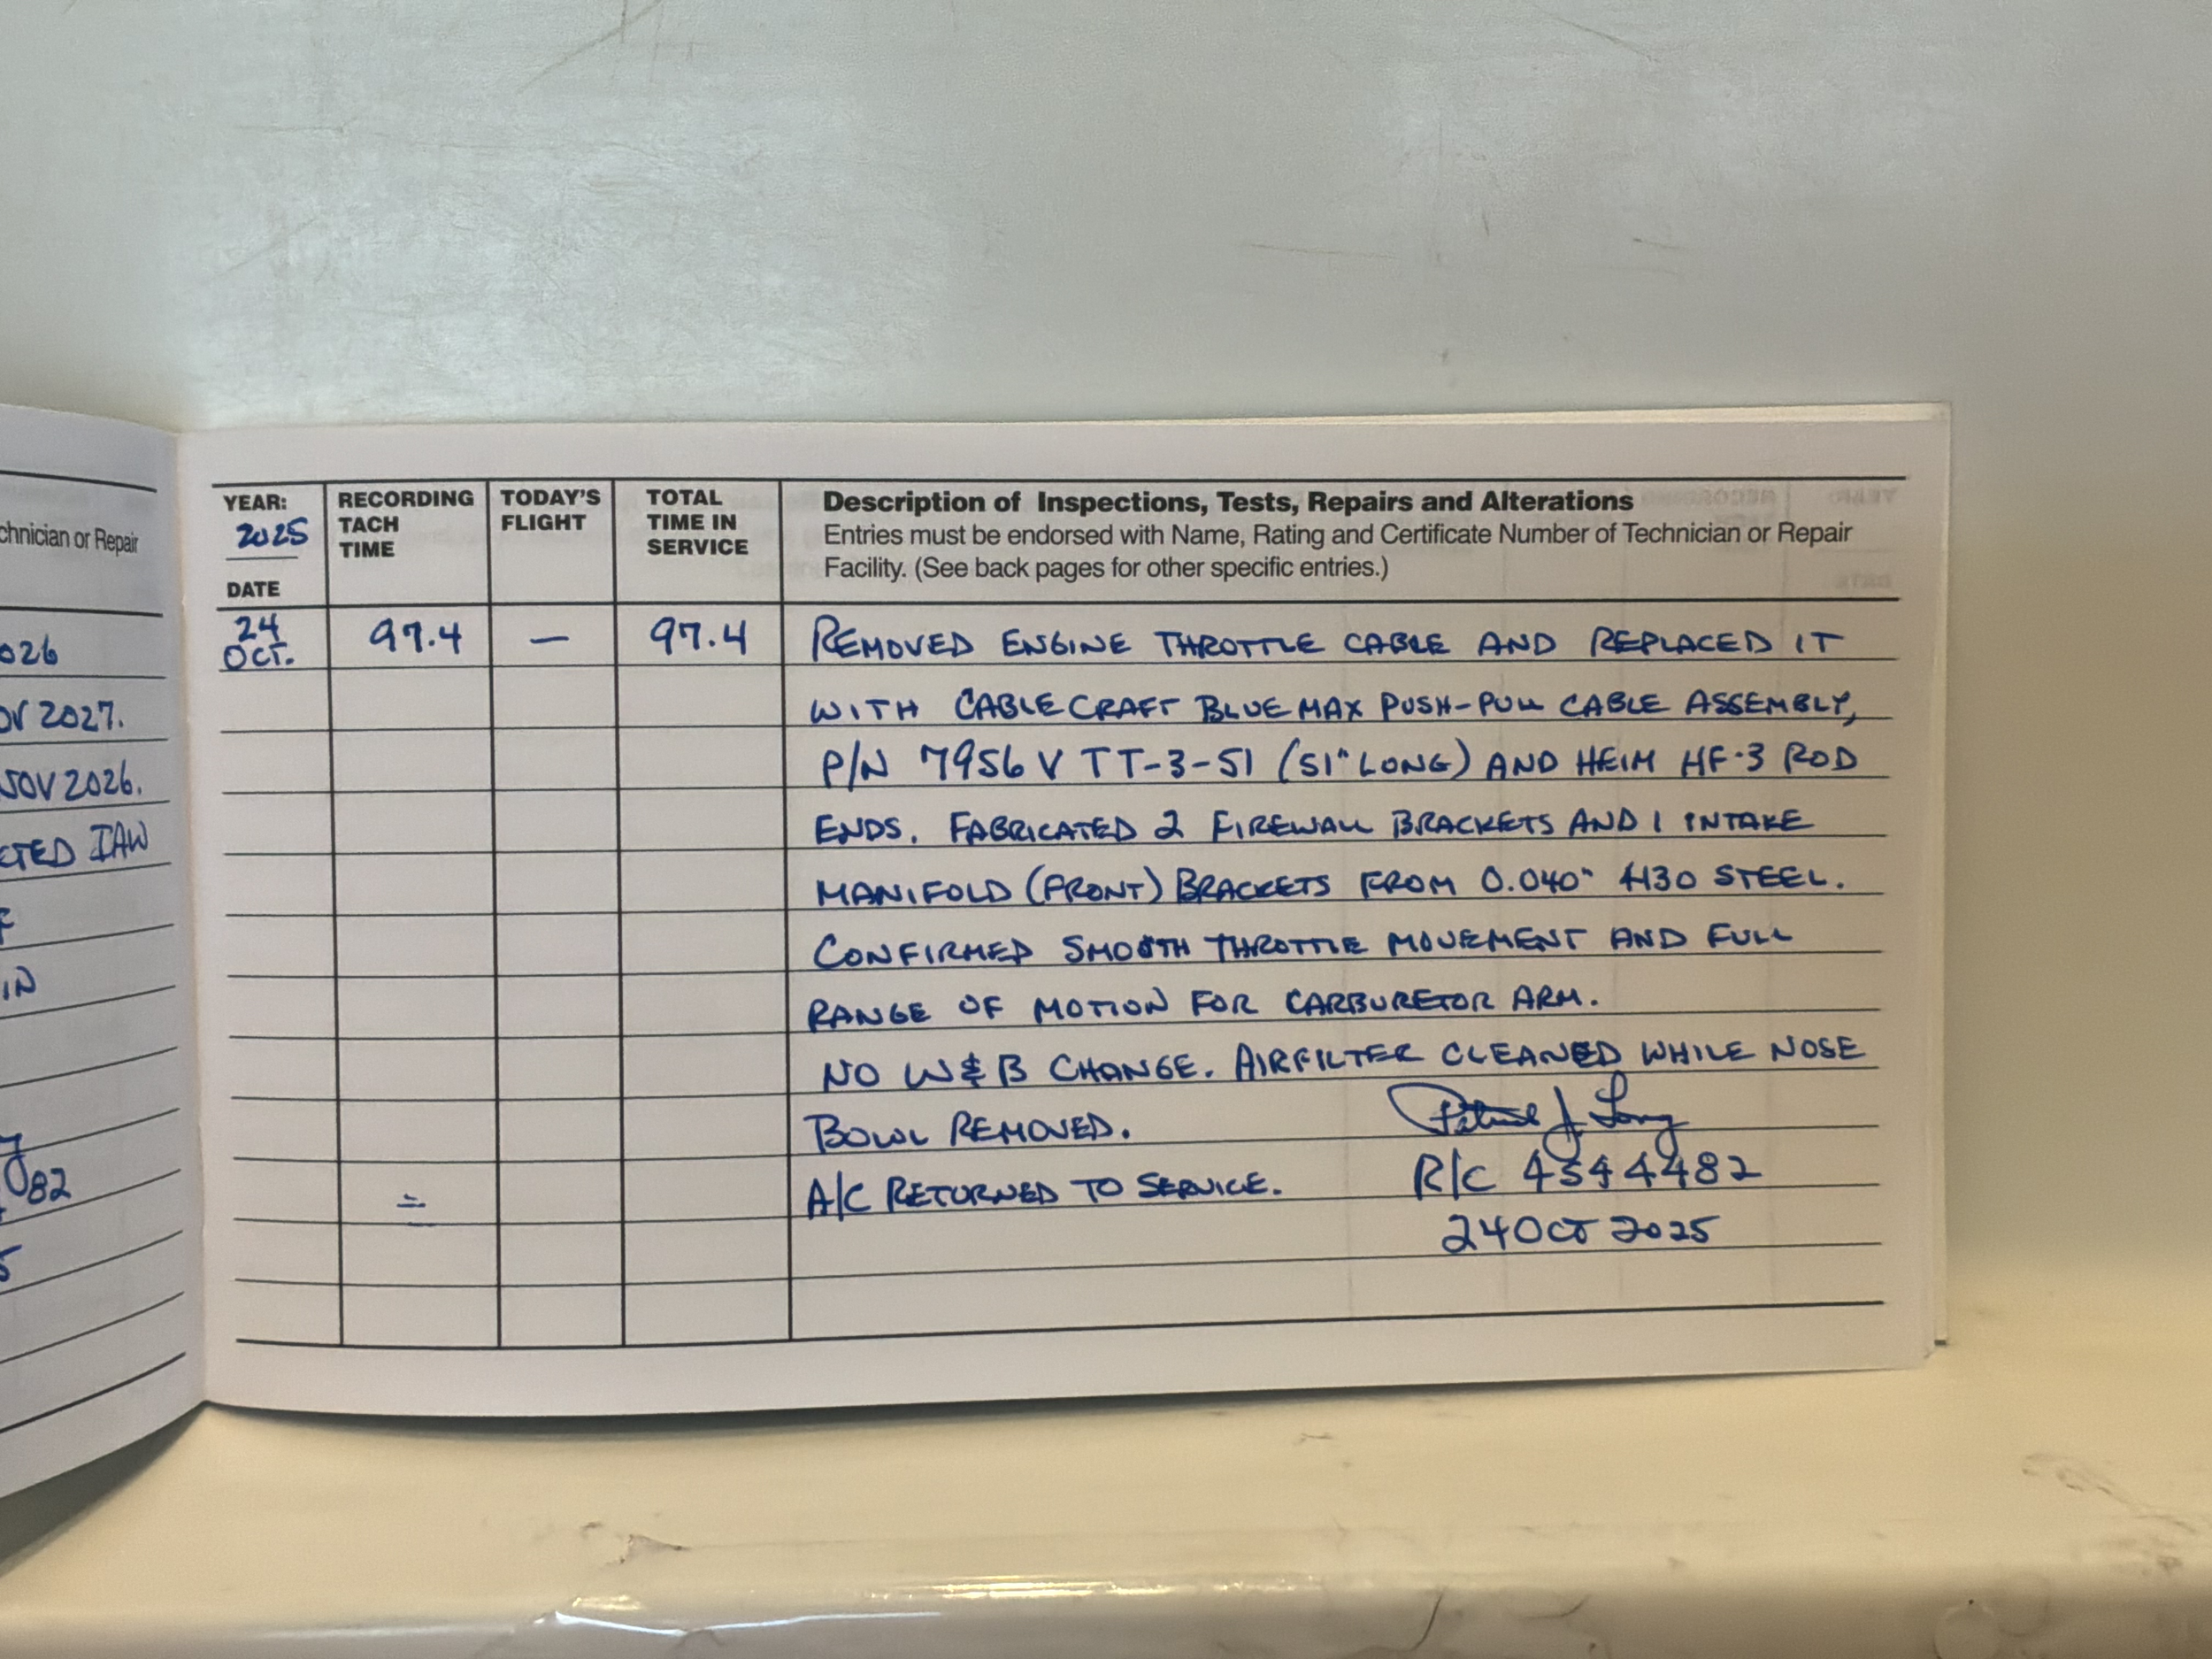 chnician or Repair
026
OV 2027.
NOV 2026.
CTED IAW
IN
82
YEAR:
2025
DATE
RECORDING
TACH
TIME
TODAY'S
FLIGHT
TOTAL
TIME IN
SERVICE
Description of Inspections, Tests, Repairs and Alterations
Entries must be endorsed with Name, Rating and Certificate Number of Technician or Repair
Facility. (See back pages for other specific entries.)
24
OCT.
97.4
—
97.4
REMOVED ENGINE THROTTLE CABLE AND REPLACED IT
WITH CABLE CRAFT BLUE MAX PUSH-PULL CABLE ASSEMBLY,
P/N 7956 V TT-3-51 (51" LONG) AND HEIM HF-3 ROD
ENDS. FABRICATED 2 FIREWALL BRACKETS AND 1 INTAKE
MANIFOLD (FRONT) BRACKETS FROM 0.040" 4130 STEEL.
CONFIRMED SMOOTH THROTTLE MOVEMENT AND FULL
RANGE OF MOTION FOR CARBURETOR ARM.
NO W & B CHANGE. AIRFILTER CLEANED WHILE NOSE
BOWL REMOVED.
A/C RETURNED TO SERVICE.
R/C 4544482
24 OCT 2025